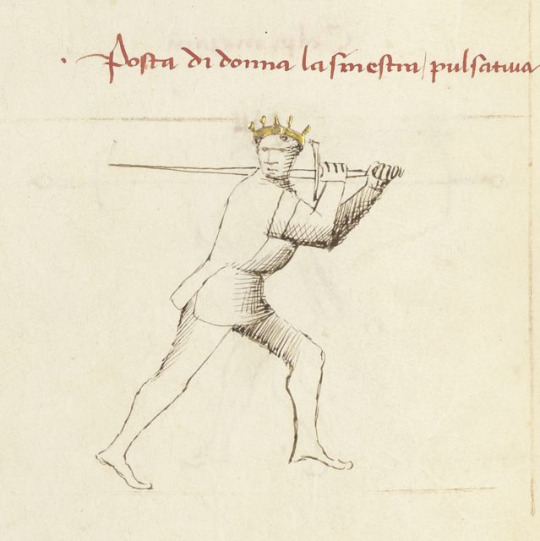 Posta di donna la sinestra / pulsativa